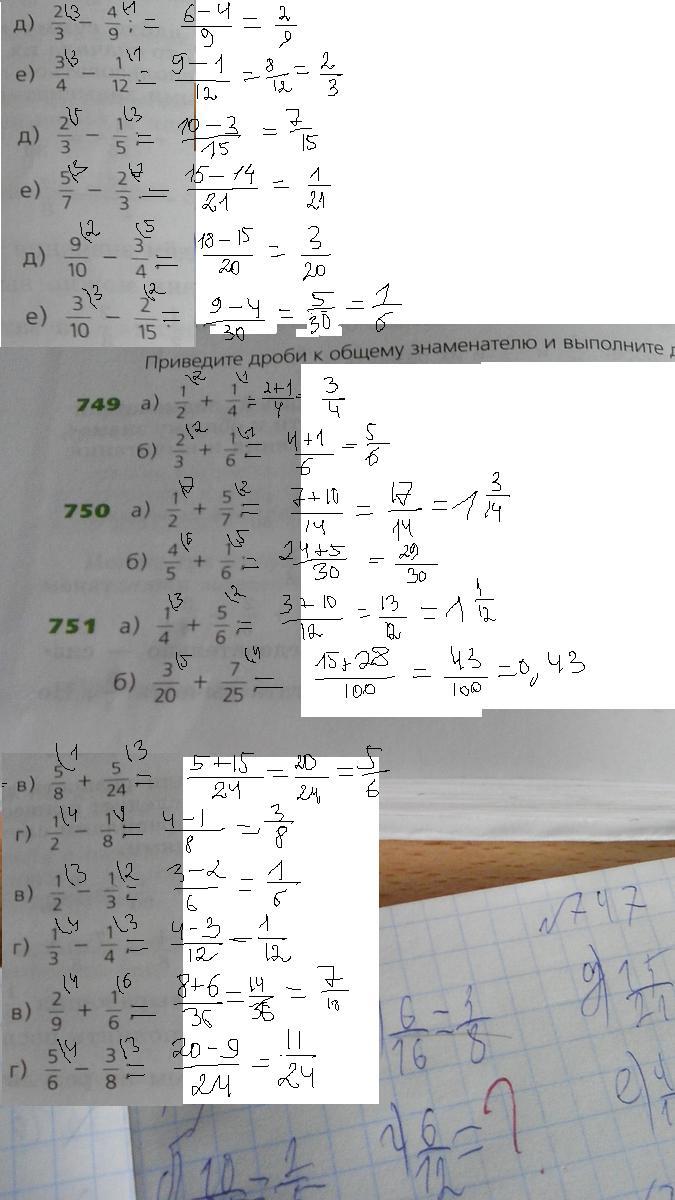 д) 2/3 \3 − 4/9 \1 ; = 6−4/9 = 2/9
е) 3/4 \3 − 1/12 \1 = 9−1/12 = 8/12 = 2/3
д) 2/3 \5 − 1/5 \3 = 10−3/15 = 7/15
е) 5/7 \3 − 2/3 \7 = 15−14/21 = 1/21
д) 9/10 \2 − 3/4 \5 = 18−15/20 = 3/20
е) 3/10 \3 − 2/15 \2 = 9−4/30 = 5/30 = 1/6
Приведите дроби к общему знаменателю и выполните д
749 а) 1/2 \2 + 1/4 \1 = 2+1/4 = 3/4
б) 2/3 \2 + 1/6 \1 = 4+1/6 = 5/6
750 а) 1/2 \7 + 5/7 \2 = 7+10/14 = 17/14 = 1 3/14
б) 4/5 \6 + 1/6 \5 = 24+5/30 = 29/30
751 а) 1/4 \3 + 5/6 \2 = 3+10/12 = 13/12 = 1 1/12
б) 3/20 \5 + 7/25 \4 = 15+28/100 = 43/100 = 0,43
в) 5/8 \1 + 5/24 \3 = 5+15/24 = 20/24 = 5/6
г) 1/2 \4 − 1/8 = 4−1/8 = 3/8
в) 1/2 \3 − 1/3 \2 = 3−2/6 = 1/6
г) 1/3 \4 − 1/4 \3 = 4−3/12 = 1/12
в) 2/9 \4 + 1/6 \6 = 8+6/36 = 14/36 = 7/18
г) 5/6 \4 − 3/8 \3 = 20−9/24 = 11/24
√747
6/16 = 3/8
д) 15/21
г) 6/12 = ?
е)
б) 10 = 1